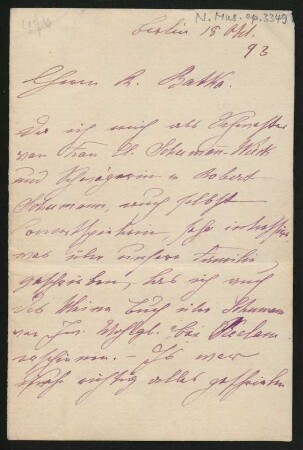 N. Mus. ep. 3349
Berlin 18 Okt.
93
Herrn R. Batka.
Da ich mich als Schwester
von Frau Cl. Schumann-Wieck
und Schwägerin v. Robert
Schumann, auch selbst
Concertspielerin, sehr interessire
was über unsere Familie
geschrieben, las ich auch
das kleine Buch über Schumann
von Ihn. bei Reclam
erschienen. – Es war
nicht richtig alles geschrieben